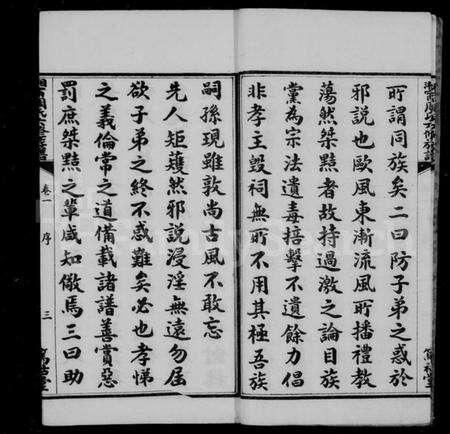 所謂同族矣二曰防子弟之惑於
邪説也歐風東漸流風所播禮教
蕩然桀黠者故持過激之論目族
黨為宗法遺毒掊擊不遺餘力倡
非孝主毀祠無所不用其極吾族
嗣孫現雖敦尚古風不敢忘
先人矩矱然邪説浸淫無遠勿屆
欲子弟之終不惑難矣必也孝悌
之義倫常之道備載諸譜善賞惡
罰庶桀黠之輩咸知儆焉三曰助
卷一
序
三